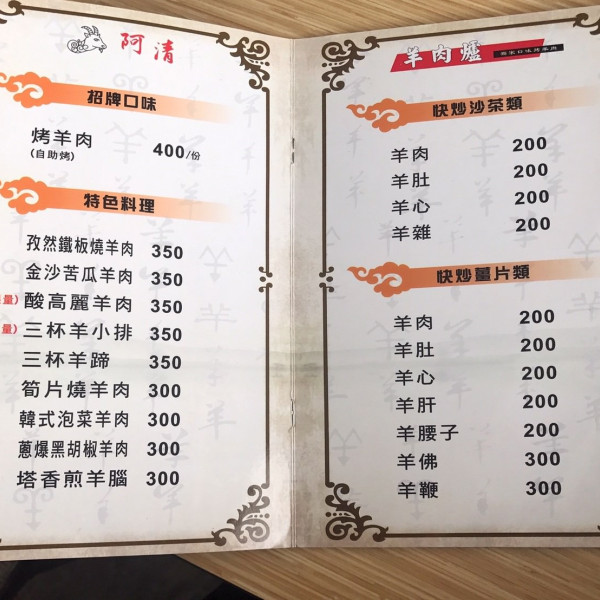 阿清
招牌口味
烤羊肉 400/份
(自助烤)
特色料理
孜然鐵板燒羊肉 350
金沙苦瓜羊肉 350
量) 酸高麗羊肉 350
量) 三杯羊小排 350
三杯羊蹄 350
筍片燒羊肉 300
韓式泡菜羊肉 300
蔥爆黑胡椒羊肉 300
塔香煎羊腦 300
羊肉爐
快炒沙茶類
羊肉 200
羊肚 200
羊心 200
羊雜 200
快炒薑片類
羊肉 200
羊肚 200
羊心 200
羊肝 200
羊腰子 200
羊佛 300
羊鞭 300